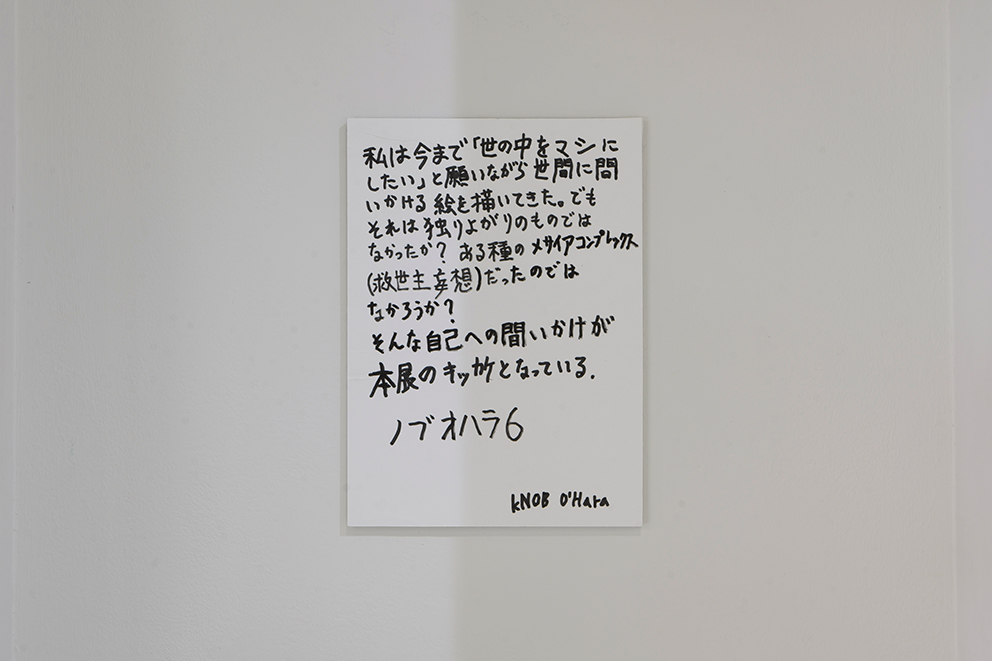 私は今まで「世の中をマシに
したい」と願いながら世間に問
いかける絵を描いてきた。でも
それは独りよがりのものでは
なかったか？ある種のメサイアコンプレックス
(救世主妄想)だったのでは
なかろうか？
そんな自己への問いかけが
本展のキッカケとなっている.
ノブオハラ6
kNOB O'Hara